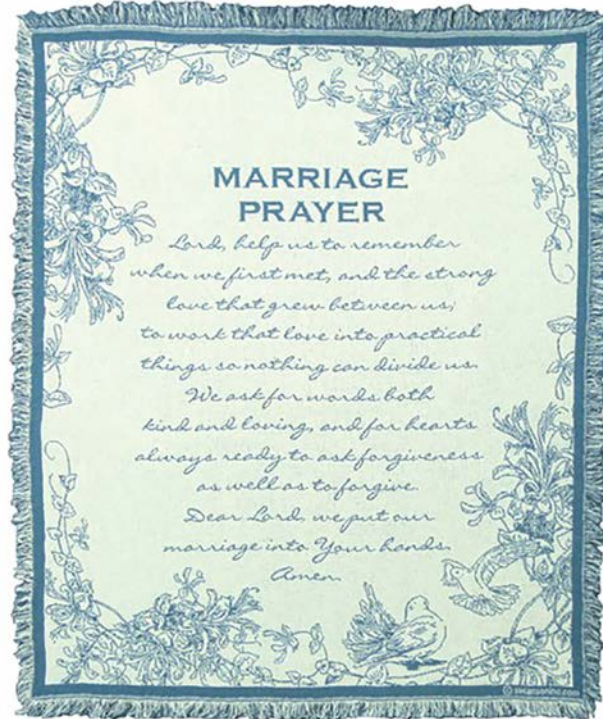 MARRIAGE
PRAYER
Lord, help us to remember
when we first met, and the strong
love that grew between us;
to work that love into practical
things so nothing can divide us.
We ask for words both
kind and loving, and for hearts
always ready to ask forgiveness
as well as to forgive.
Dear Lord, we put our
marriage into Your hands.
Amen.